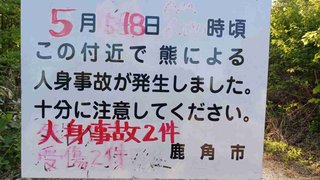 5月18日 時頃
この付近で熊による
人身事故が発生しました。
十分に注意してください。
人身事故2件
受傷2件 鹿角市